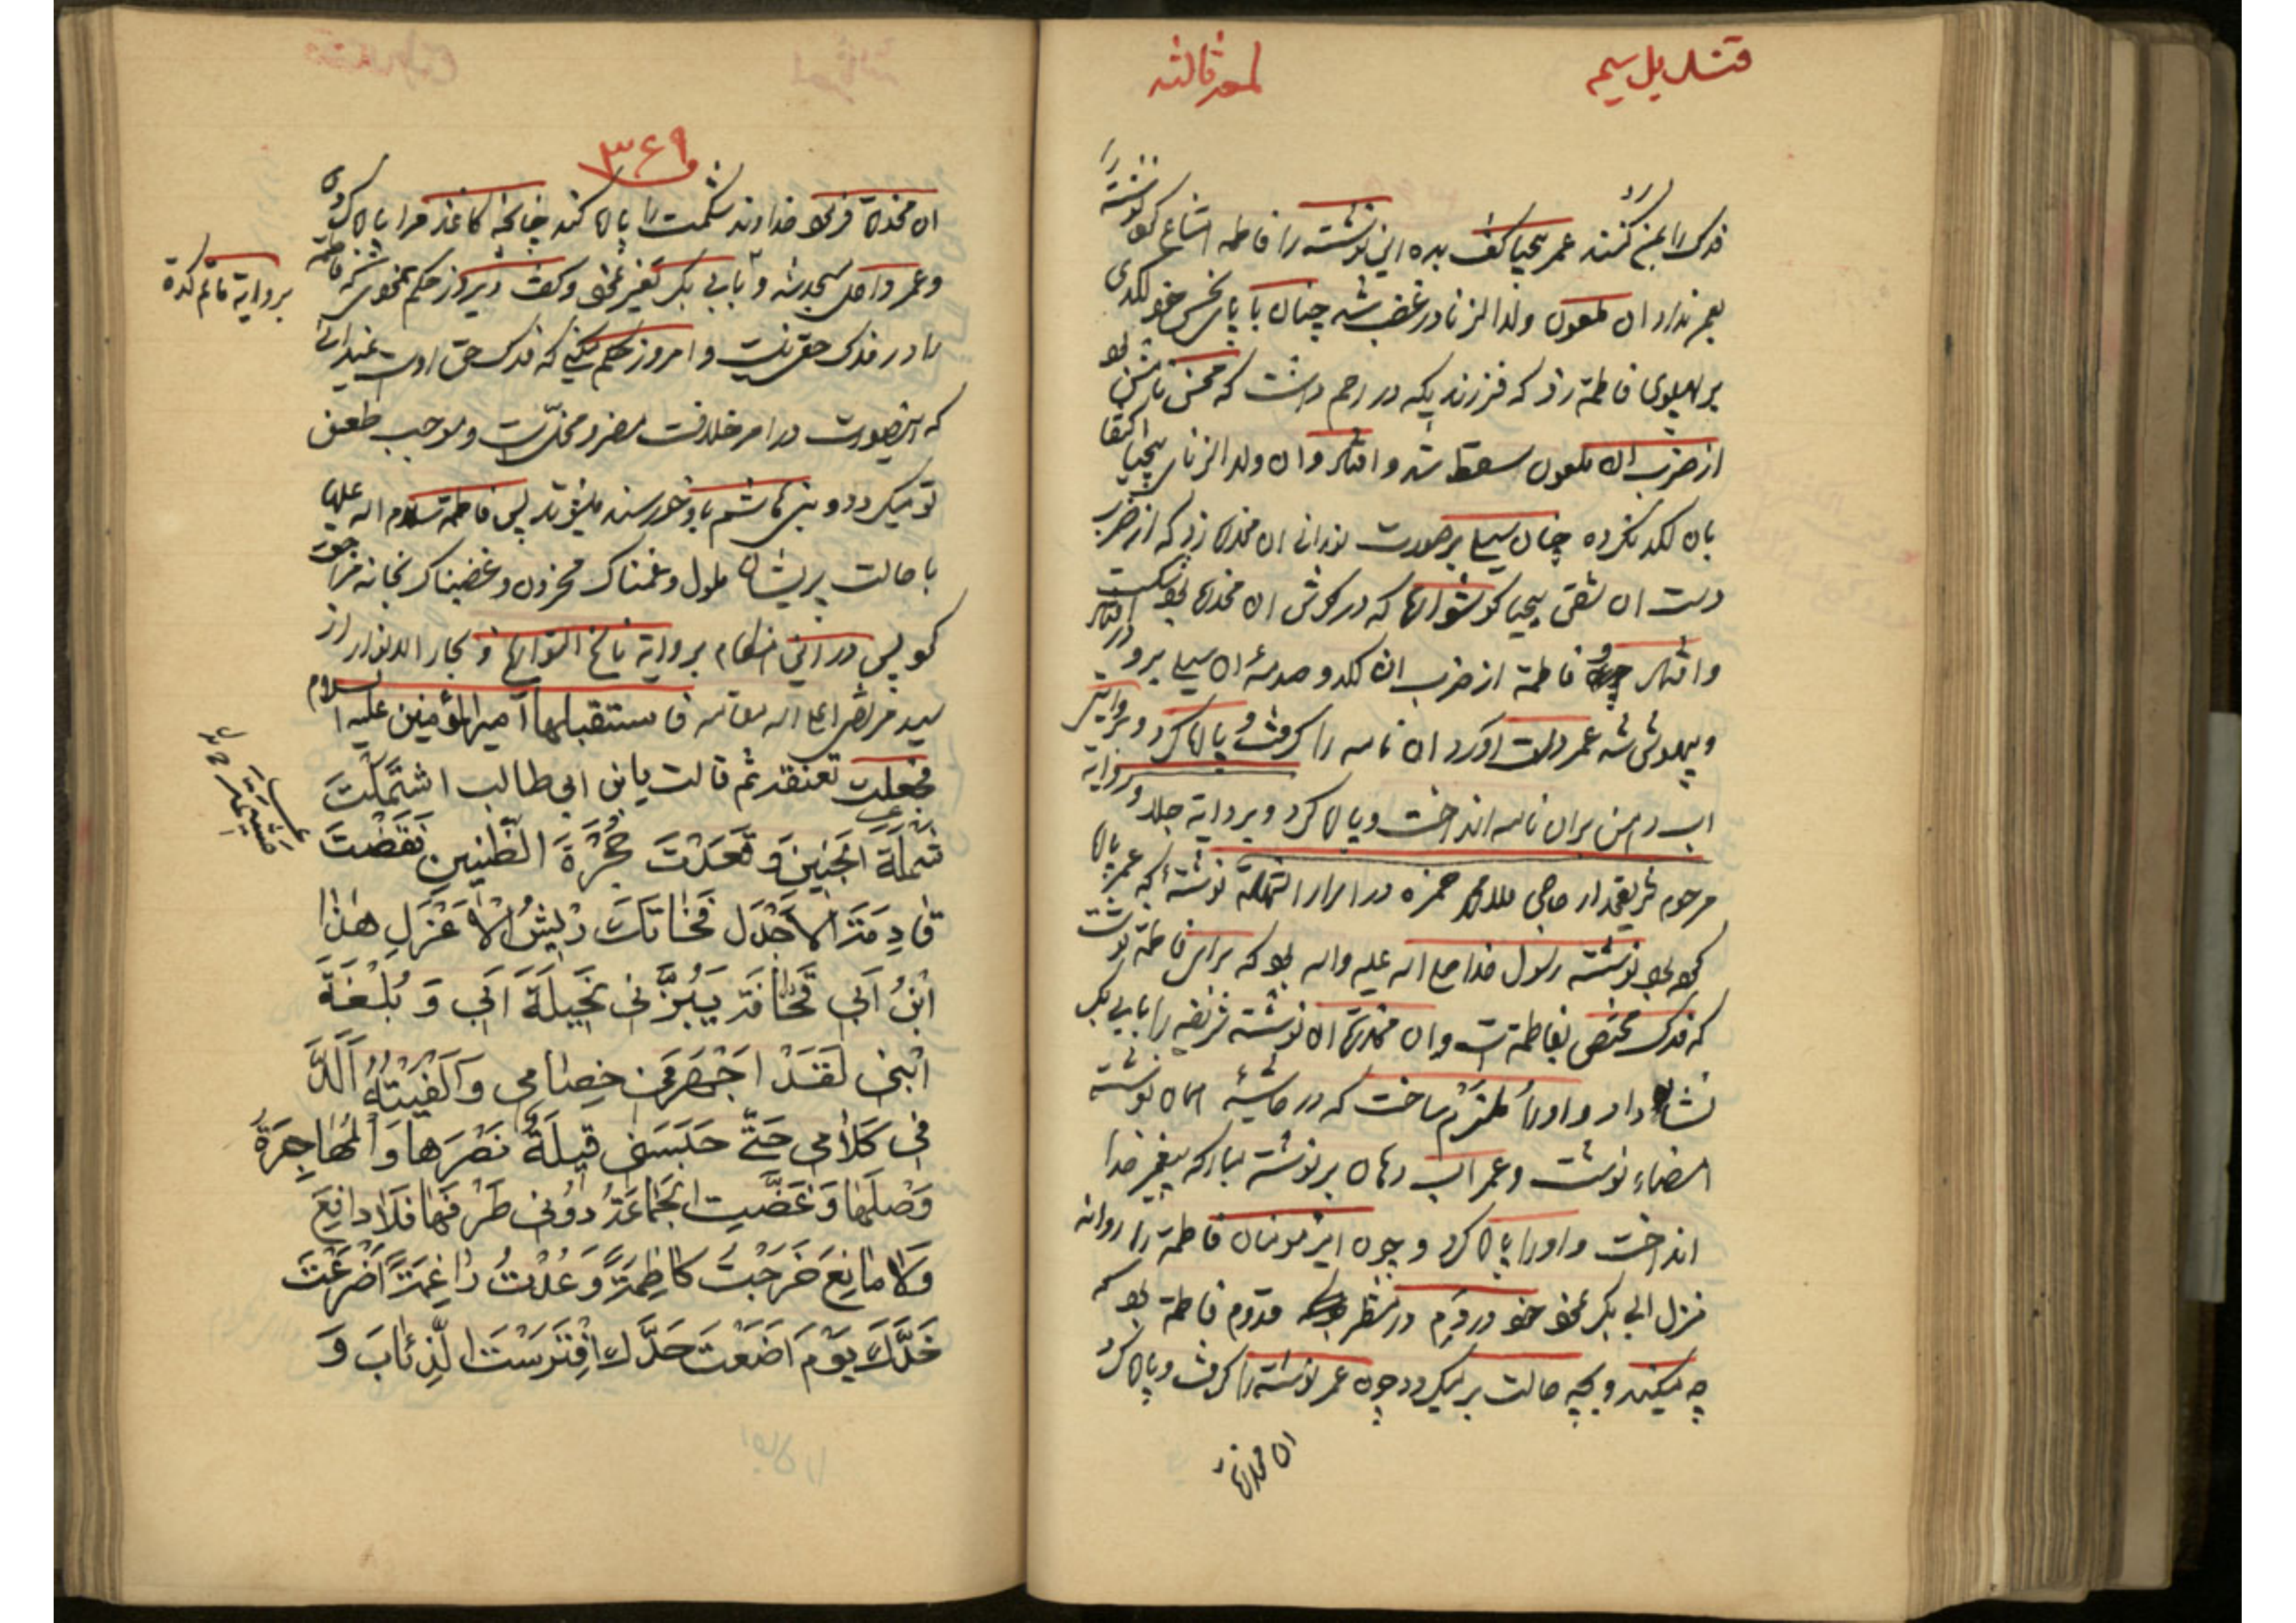 قندیل سیم
لمعه ثالثه
فدک را بمن کنند عمر بیحیا گفت بده این نوشته را فاطمه امتناع کرد نوشته را
بعمر نداد ان ملعون ولد الزنا در غضب شد چنان با پای نحس خود لکدی
بر پهلوی فاطمه زد که فرزندیکه در رحم داشت که محسن نامش بود
از ضرب ان ملعون سقط شد و افتاد و ان ولد الزنای بیحیا اکتفا
بان لکد نکرده چنان سیلی بر صورت نورانی ان مخدره زد که از ضرب
دست ان شقی بیحیا کوشوارها که در کوش ان مخدره بود شکست
و افتاد و فاطمه از ضرب ان لکد و صدمه ان سیلی برو در افتاد
و بیهوش شد عمر دست اورد ان نامه را کرفت و پاره کرد و بروایتی
اب دهن بران نامه انداخت و پاره کرد و بروایة جلد و بروایه
مرحوم شریعتمدار حاجی ملا محمد حمزه در اسرار الشهادة نوشته که عمر پاره
کرده بود نوشته رسول خدا صلی الله علیه واله بود که برای فاطمه نوشت
که فدک مختص بفاطمه است و ان مخدره ان نوشته شریفه را بابی بکر
نشان داد و او را ملتزم ساخت که در حاشیه همان نوشته
امضاء نوشت و عمر اب دهان بر نوشته مبارکه پیغمبر خدا
انداخت و او را پاره کرد و چون امیر مومنان فاطمه را روانه
منزل ابی بکر نمود خود در دم در منتظر قدوم فاطمه بود که
چه میکند و بچه حالت بر میکردد چون عمر نوشته را کرفت و پاره کرد
ان مخدره
۳۶۹
ان مخدره فرمود خداوند شکمت را پاره کند چنانچه کاغذ مرا پاره کردی
و عمر داخل مسجد شد و بابی بکر تغیر نمود و گفت دیروز حکم نمودی که فاطمه
بروایة قائم کدة
را در فدک حقی نیست و امروز حکم میکنی که فدک حق اوست نمیدانی
که اینصورت در امر خلافت مضر و مخل است و موجب طعن
تو میکردد و بنی هاشم باو خورسند میشوند پس فاطمه سلام الله علیها
با حالت پریشان ملول و غمناک محزون و غضبناک بخانه مراجعت
در این هنکام بروایة ناسخ التواریخ و بحار الانوار از
سید مرتضی اعلی الله مقامه فاستقبلها امیر المؤمنین علیه السلام
فجعلت تعنفه ثم قالت یابن ابی طالب اشتملت
شملة الجنین و قعدت حجرة الظنین نقضت
قادمة الاجدل فخانک ریش الاعزل هذا
ابن ابی قحافة یبتزنی نحیلة ابی و بلغة
ابنی لقد اجهر فی خصامی و الفیته الد
فی کلامی حتی حبستنی قیلة نصرها و المهاجرة
وصلها و غضت الجماعة دونی طرفها فلا دافع
ولا مانع خرجت کاظمة و عدت راغمة اضرعت
خدک یوم اضعت حدک افترست الذئاب و